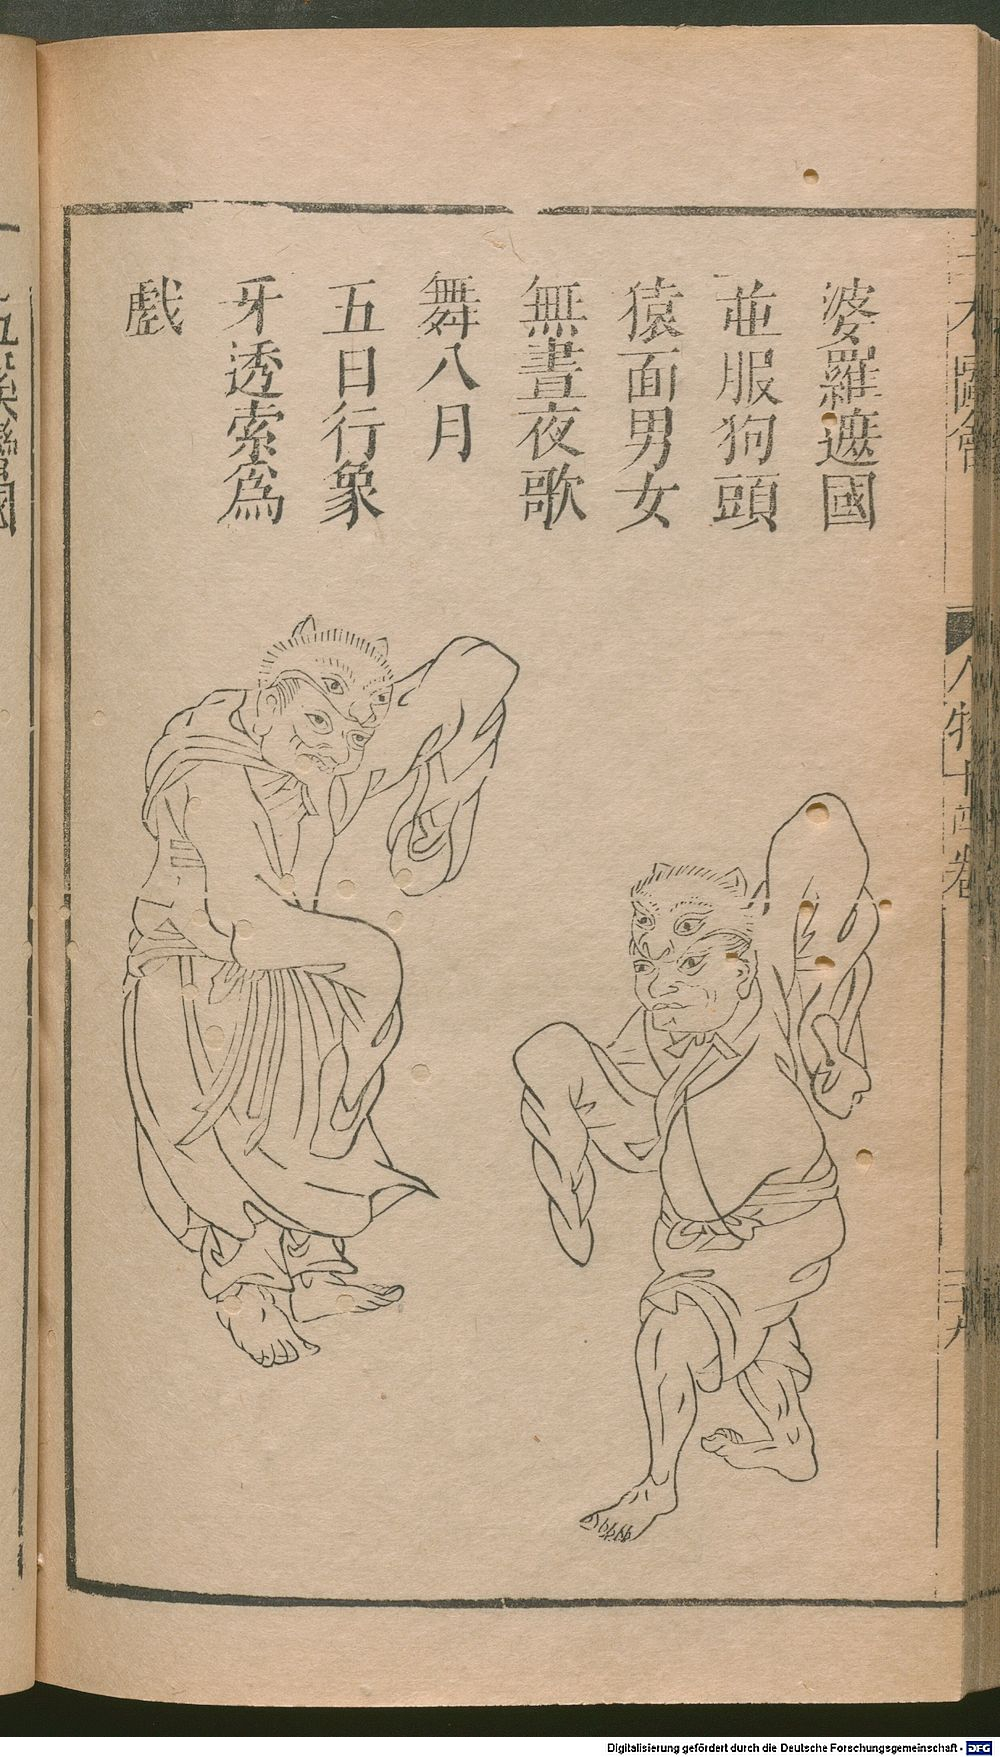 婆羅遮國
並服狗頭
猿面男女
無晝夜歌
舞八月
五日行象
牙透索爲
戲
三才圖會
人物十四卷
Digitalisierung gefördert durch die Deutsche Forschungsgemeinschaft - DFG